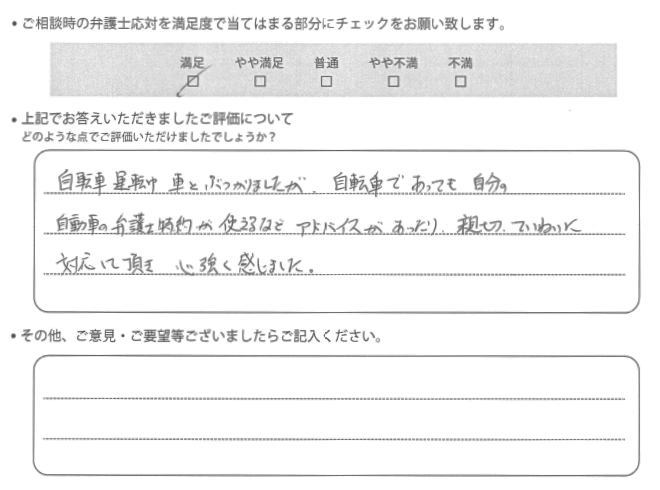 • ご相談時の弁護士応対を満足度で当てはまる部分にチェックをお願い致します。
満足 やや満足 普通 やや不満 不満
□ □ □ □ □
• 上記でお答えいただきましたご評価について
どのような点でご評価いただけましたでしょうか？
自転車運転中 車とぶつかりましたが、自転車であっても 自分の
自動車の弁護士特約が使えるなど アドバイスがあったり、親切、ていねいに
対応して頂き 心強く感じました。
• その他、ご意見・ご要望等ございましたらご記入ください。